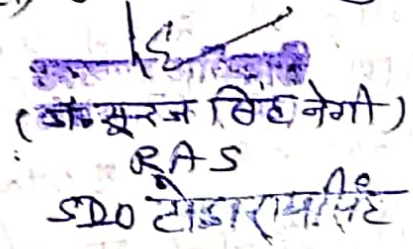 (डॉ० सूरज सिंह नेगी)
RAS
SDO टोडारायसिंह